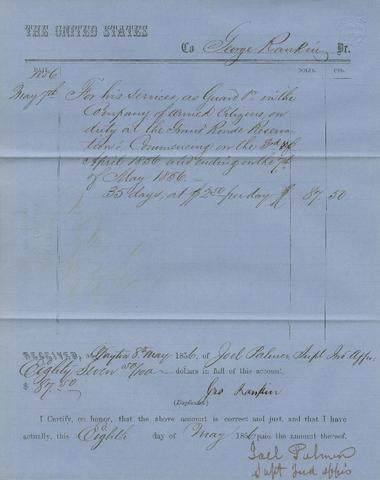 THE UNITED STATES
To George Rankin, Dr.
DATE. DOLLS. CTS.
1856
May 7th For his services, as Guard in the
Company of armed Citizens, on
duty at the Grand Ronde Reserva-
tion: Commencing on the 3rd of
April 1856 and ending on the 7th
of May 1856 —
35 days, at $2.50 per day $ 87. 50
RECEIVED, at Dayton 8th May 1856, of Joel Palmer Supt Ind Affrs
Eighty Seven 50/100 dollars in full of this account.
$ 87.50
Geo Rankin
(Duplicate)
I Certify, on honor, that the above account is correct and just, and that I have
actually, this Eighth day of May 1856 paid the amount thereof.
Joel Palmer
Supt Ind affrs